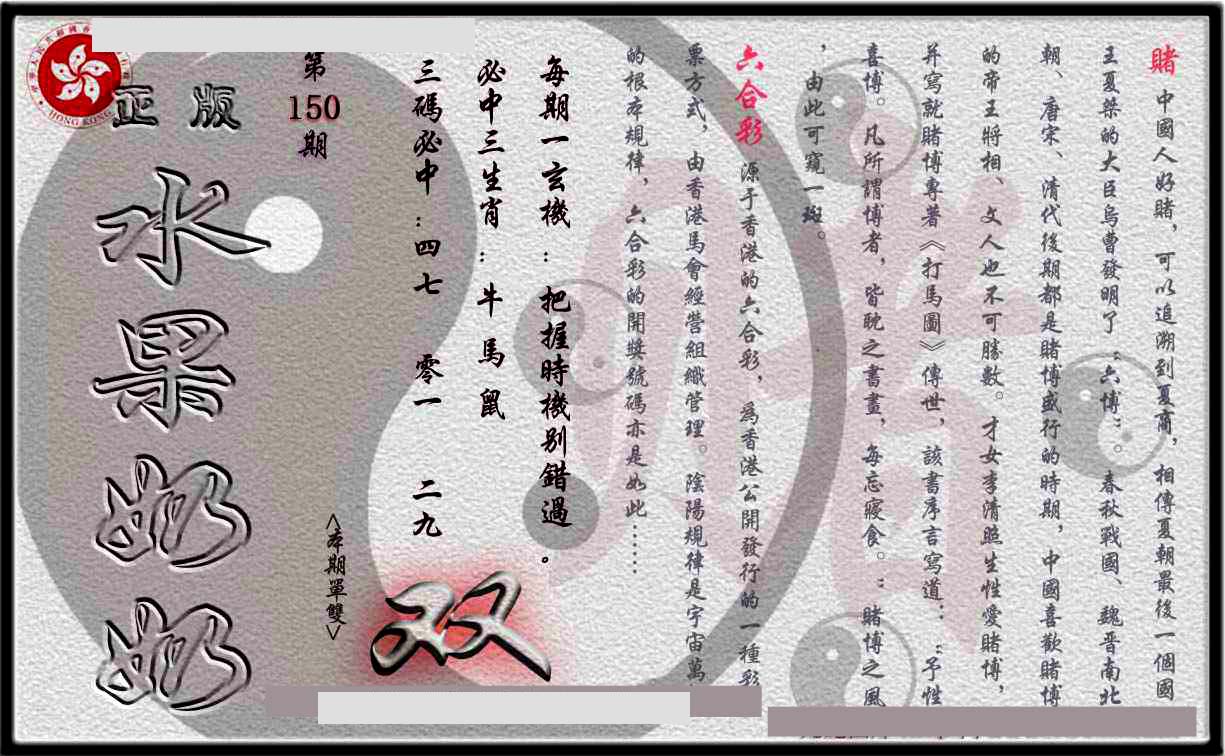 賭 中國人好賭，可以追溯到夏商，相傳夏朝最後一個國
王夏桀的大臣烏曹發明了“六博”。春秋戰國、魏晋南北
朝、唐宋、清代後期都是賭博盛行的時期，中國喜歡賭博
的帝王將相、文人也不可勝數。才女李清照生性愛賭博，
并寫就賭博專著《打馬圖》傳世，該書序言寫道：“予性
喜博。凡所謂博者，皆耽之書畫，每忘寢食。”賭博之風
，由此可窺一斑。
六合彩 源于香港的六合彩，為香港公開發行的一種彩
票方式，由香港馬會經營組織管理。陰陽規律是宇宙萬
的根本規律，六合彩的開獎號碼亦是如此……
每期一玄機：把握時機别錯過。
必中三生肖：牛 馬 鼠
三碼必中：四七 零一 二九
<本期單雙>
双
第
150
期
正版
水果奶奶
HONG KONG